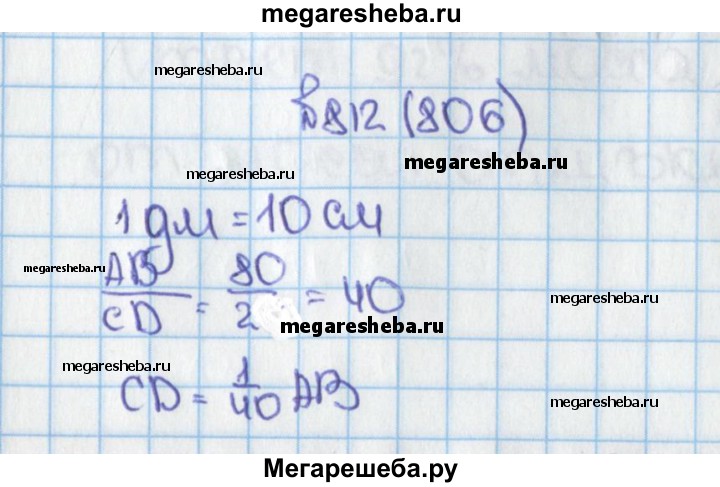 megaresheba.ru
megaresheba.ru
№ 812 (806)
megaresheba.ru
1 дм = 10 см
megaresheba.ru
AB/CD = 80/2 = 40
megaresheba.ru
megaresheba.ru
megaresheba.ru
CD = 1/40 AB
megaresheba.ru
Мегарешеба.ру